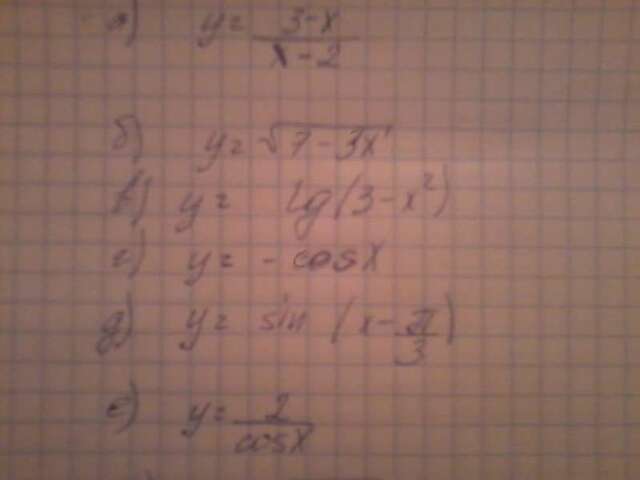 а) y = 3-x / x-2
б) y = √7-3x
в) y = lg(3-x²)
г) y = -cosx
д) y = sin(x-π/3)
е) y = 2 / cosx